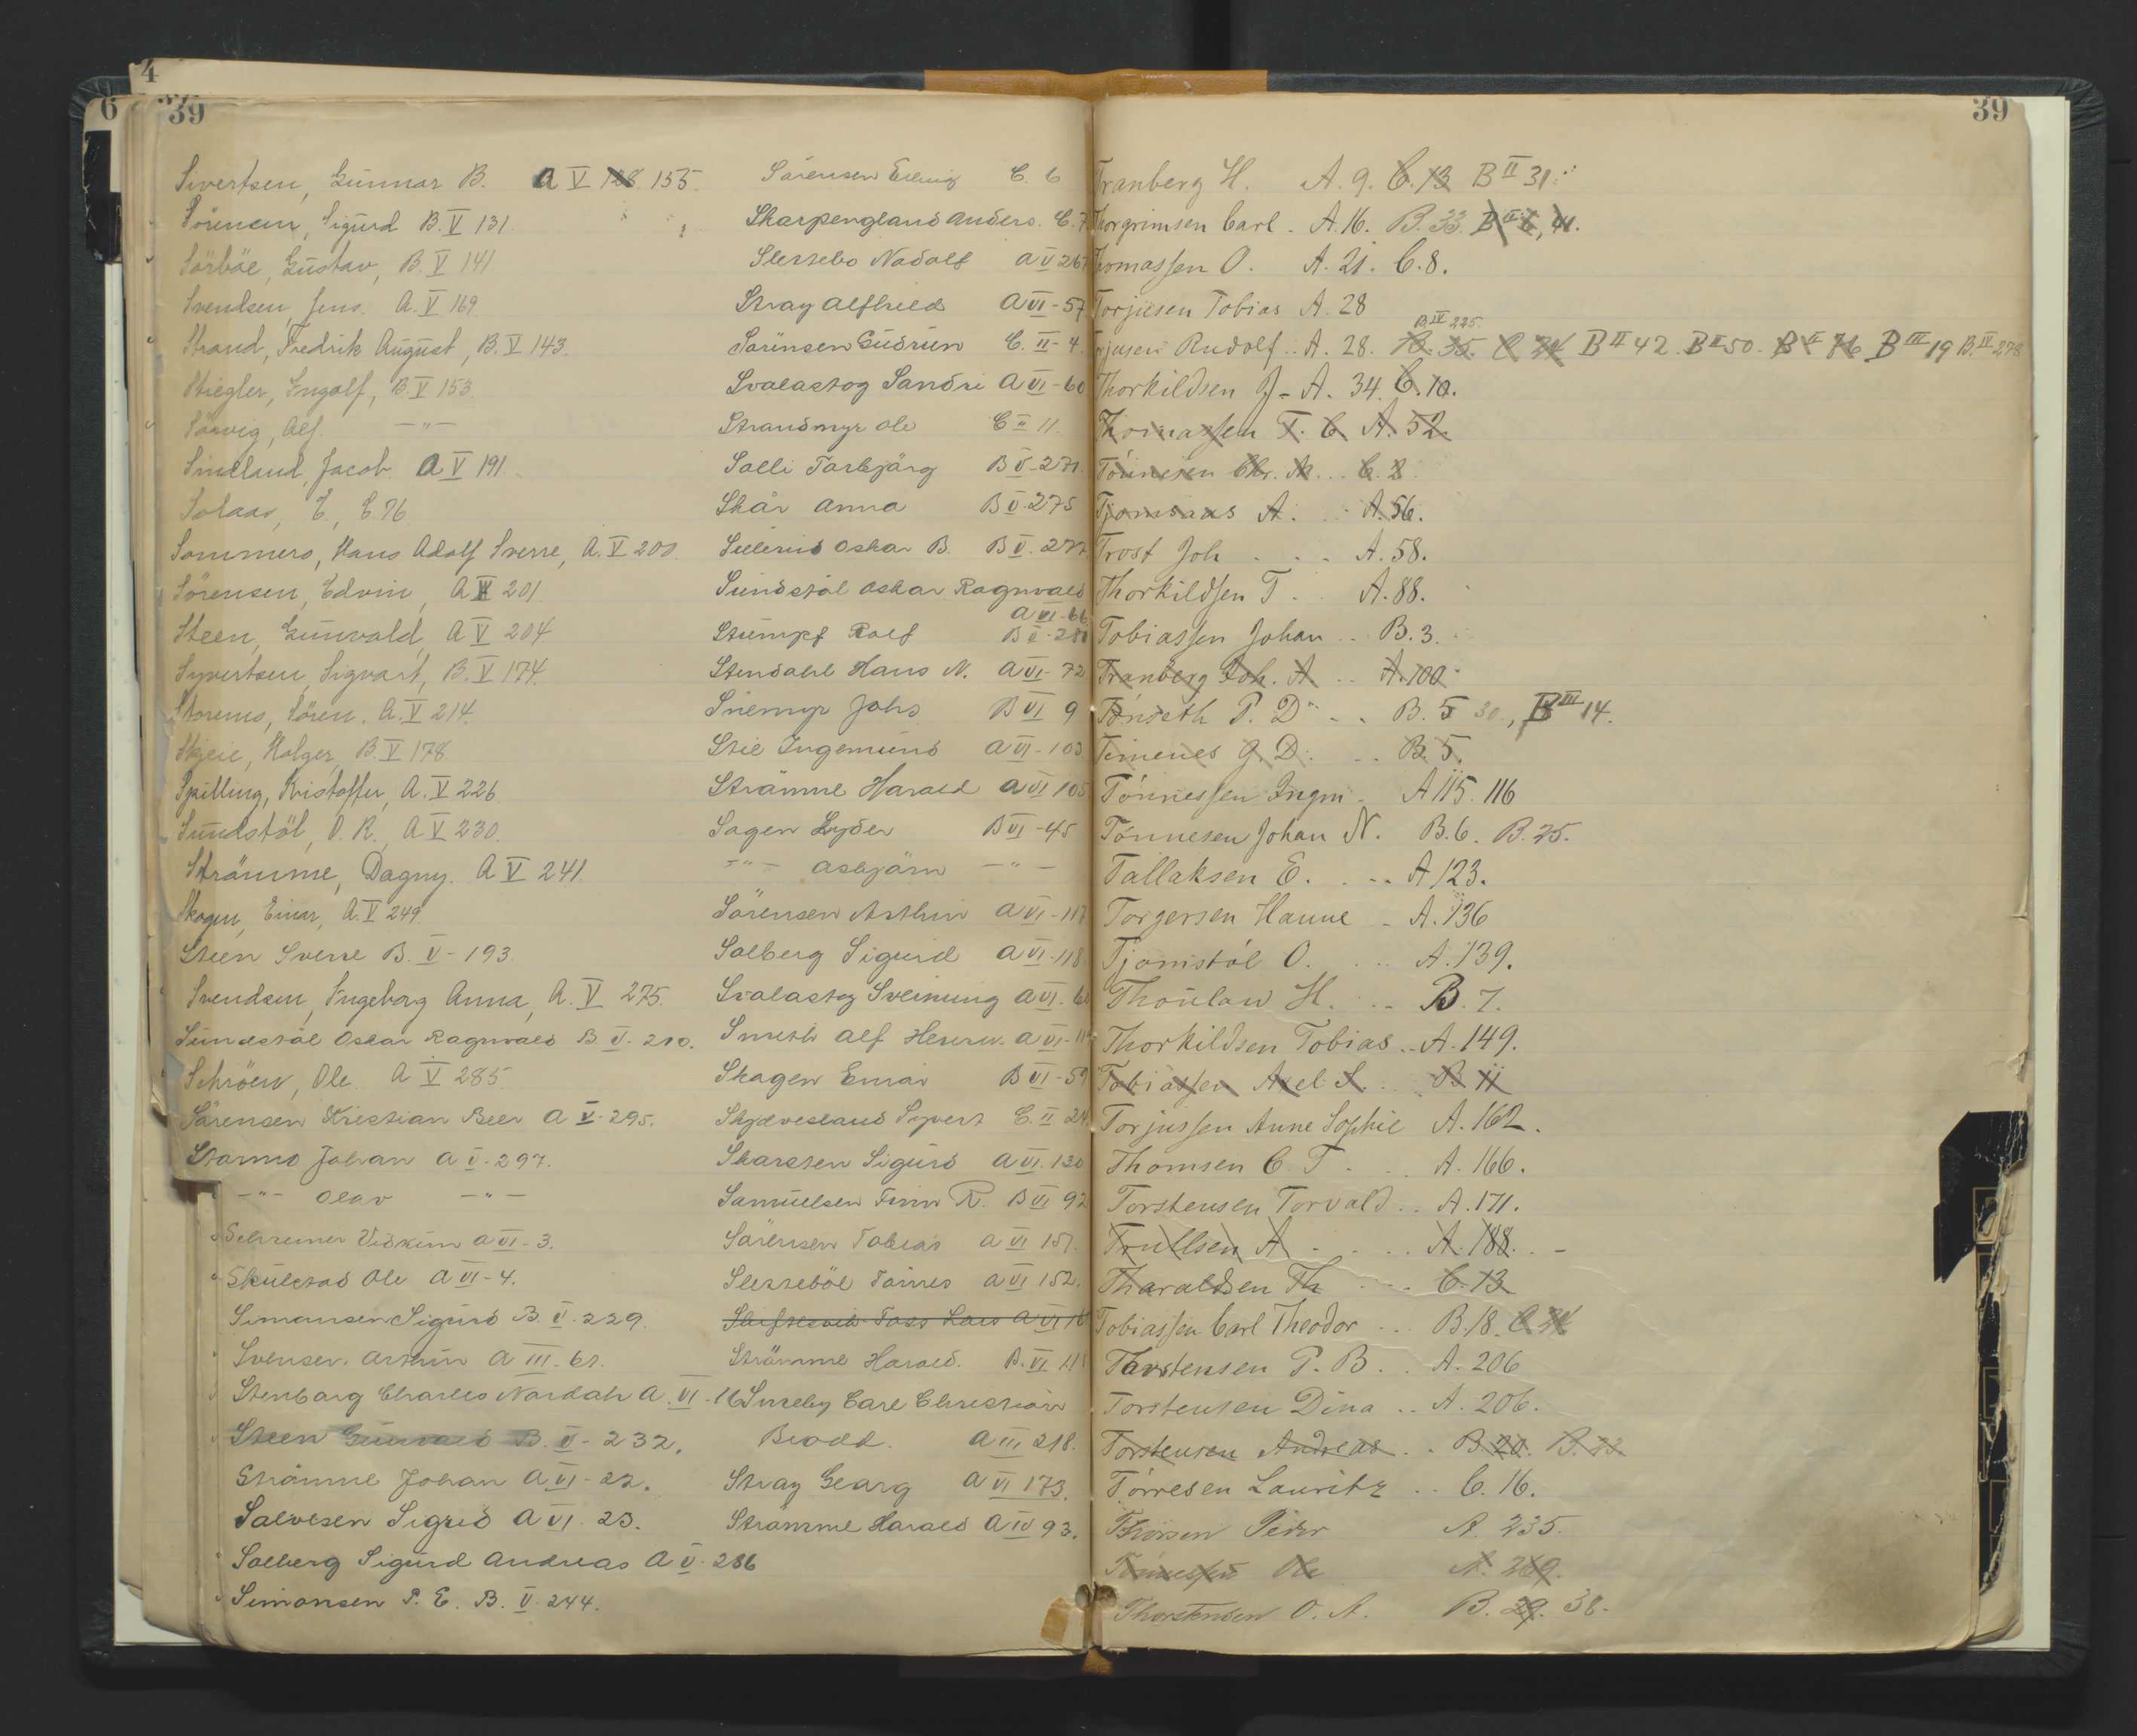 4
6
39
Sivertsen, Gunnar B. A V 128. 155.
Sörensen, Sigurd B. V 131.
Sörböe, Gustav, B. V 141
Svendsen, Jens. A. V 169.
Strand, Fredrik August, B. V 143.
Stiegler, Ingolf, B V 153.
Sörvig, Alf. —"—
Smeland, Jacob A V 191.
Solaas, E., C. 76
Sommers, Hans Adolf Sverre, A. V 200.
Sörensen, Edvin, A V 201.
Steen, Gunvald, A V 204
Syvertsen, Sigvart, B. V 174.
Storemo, Sören. A. V 214.
Skjeie, Holger, B. V 178
Spilling, Kristoffer, A. V 226
Sundstöl, O. R., A V 230.
Strömme, Dagny. A V 241.
Skogen, Einar, A. V 249
Steen Sverre B. V - 193.
Svendsen, Ingeborg Anna, A. V 275.
Sundstöl Oskar Ragnvald B. V - 210.
Schröer, Ole A V 285.
Sörensen Kristian Beer A V - 295.
Stormo Johan A V - 297.
—"— Olav —"—
Schreiner Vidkun A VI - 3.
Skulstad Ole A VI - 4.
Simonsen Sigurd B. V. 229.
Svensen. Arthur A III - 61.
Stenborg Charles Nordah A. VI - 16
Steen Gunvald B. V - 232.
Strömme Johan A VI - 22.
Salvesen Sigrid A VI. 23.
Solberg Sigurd Andreas A V. 286
Simonsen P. E. B. V. 244.
Sörensen Erling C. 6
Skarpengland Anders. C. 7
Slettebo Nadolf A V 267
Stray Alfhild A VI - 57
Sörensen Gudrun C. II - 4.
Svalastog Sandri A VI - 60
Strandmyr Ole C II 11.
Solli Torbjörg B V - 271.
Skår Anna B V. 275
Sollund Oskar B. B V. 277
Sundstöl Oskar Ragnvald
A VI - 66
Stumpf Rolf B V - 280
Stendahl Hans N. A VI - 72
Snemyr Johs B VI 9
Stie Ingemund A VI - 103
Strömme Harald A VI 105
Sagen Lyder B VI - 45
—"— Asbjörn —"—
Sörensen Arthur A VI - 117
Solberg Sigurd A VI. 118
Svalastog Sveinung A VI. 60
Smith Alf Henrw. A VI - 11
Skagen Einar B VI - 59
Skjæveland Syvert C. II 24
Skarsten Sigurd A VI. 130
Samuelsen Finn R. B VI 92
Sörensen Tobias A VI 151.
Sletteböe Tönnes A VI 152.
Strömme Harald. B. VI 118
Smeby Carl Christian
Brodd. A III 218.
Stray Georg A VI 173.
Strömme Harald A IV 93.
39
Tranberg H. A. 9. C. 13 B II 31.
Thorgrimsen Carl. A. 16. B. 33. B II 6, 41.
Thomassen O. A. 21. C. 8.
Torjusen Tobias A. 28
B. IV 225.
Torjusen Rudolf.. A. 28. B. 35. C 34 B II 42. B II 50. B II 76 B III 19 B. IV 278
Thorkildsen J - A. 34. C. 10.
Thomassen T. C. A. 52.
Tönnesen Chr. A... C. 2.
Tjomsaas A. A. 56.
Trost Joh - - - A. 58.
Thorkildsen T.. A. 88.
Tobiassen Johan.. B. 3.
Tranberg Joh. A.. A. 100
Töndeth P. D. - . B. 5 30., B III 14.
Teimenes G. D. .. B. 5.
Tönnessen Ingm. A 115. 116
Tönnesen Johan N. B. 6. B. 25.
Tallaksen E. . .. A 123.
Torgersen Hanne - A. 136
Tjomstöl O. ... A. 139.
Thoulow H. .. B. 7.
Thorkildsen Tobias.. A. 149.
Tobiassen Axel S. .. B 11
Torjussen Anne Sophie A. 162.
Thomsen C. T. . . A. 166.
Torstensen Torvald.. A. 171.
Trullsen A - . . . A. 188. . -
Tharaldsen Th . . . C. 13
Tobiassen Carl Theodor... B. 18. C 34
Torstensen P. B. . A. 206
Torstensen Dina.. A. 206.
Torstensen Andreas.. B. 20. B. 23
Törresen Lauritz.. C. 16.
Thorsen Peder A. 235.
Tönnessen Ole A. 269.
Thorstensen O. A. B. 29. 38.